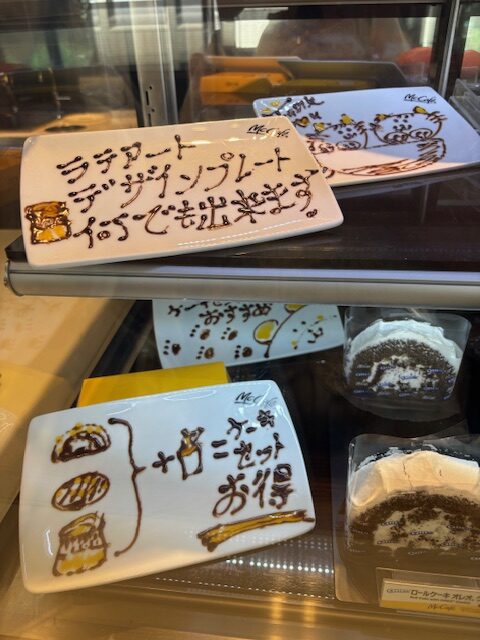 McCafé
Thank
you
McCafé
ラテアート
デザインプレート
何でも出来ます
おすすめ
McCafé
+
=ケーキ
セット
お得
ロールケーキ オレオ
McCafé